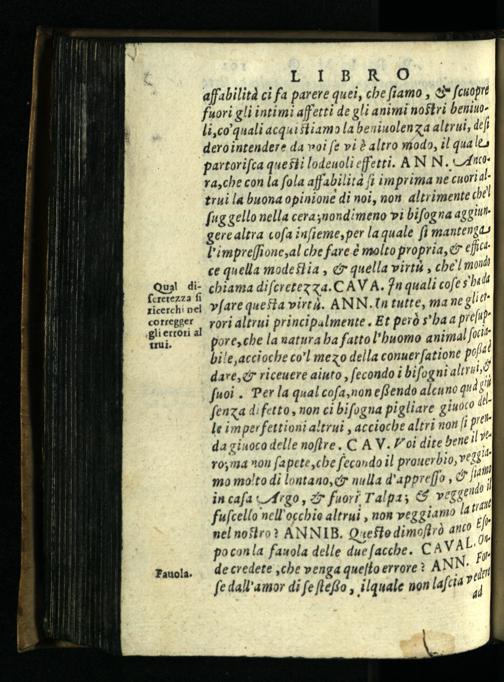 LIBRO
affabilità ci fa parere quei, che siamo, & scuopre
fuori gli intimi affetti de gli animi nostri beniuo-
li, co' quali acquistiamo la beniuolenza altrui, desi
dero intendere da voi se vi è altro modo, il quale
partorisca questi lodeuoli effetti. ANN. Anco-
ra, che con la sola affabilità si imprima ne cuori al-
trui la buona opinione di noi, non altrimente che'l
suggello nella cera; nondimeno vi bisogna aggiun-
gere altra cosa insieme, per la quale si mantenga
l'impressione, al che fare è molto propria, & effica-
ce quella modestia, & quella virtù, che'l mondo
chiama discretezza. CAVA. In quali cose s'ha da
vsare questa virtù. ANN. In tutte, ma ne gli er-
rori altrui principalmente. Et però s'ha a presup-
pore, che la natura ha fatto l'huomo animal socia-
bile, accioche co'l mezo della conuersatione possa e
dare, & riceuere aiuto, secondo i bisogni altrui, &
suoi. Per la qual cosa, non essendo alcuno quà giù
senza difetto, non ci bisogna pigliare giuoco del-
le imperfettioni altrui, accioche altri non si pren-
da giuoco delle nostre. CAV. Voi dite bene il ve-
ro; ma non sapete, che secondo il prouerbio, veggia-
mo molto di lontano, & nulla d'appresso, & siamo
in casa Argo, & fuori Talpa; & veggendo il
fuscello nell'occhio altrui, non veggiamo la traue
nel nostro? ANNIB. Questo dimostrò anco Eso-
po con la fauola delle due sacche. CAVAL. On-
de credete, che venga questo errore? ANN. For-
se dall'amor di se stesso, ilquale non lascia vedere
ad
Qual di-
scretezza si
ricerchi nel
corregger
gli errori al
trui.
Fauola.